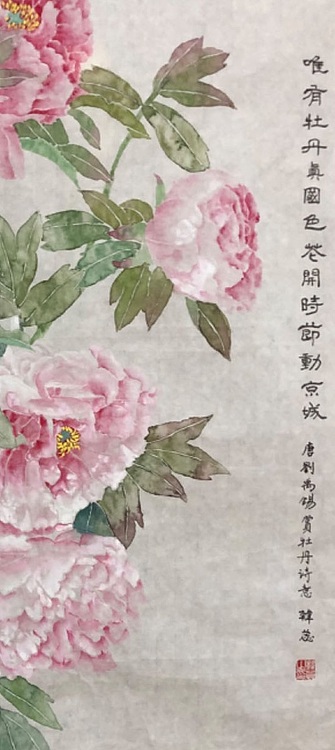 唯有牡丹真國色花開時節動京城
唐劉禹锡賞牡丹诗意 韓蕊